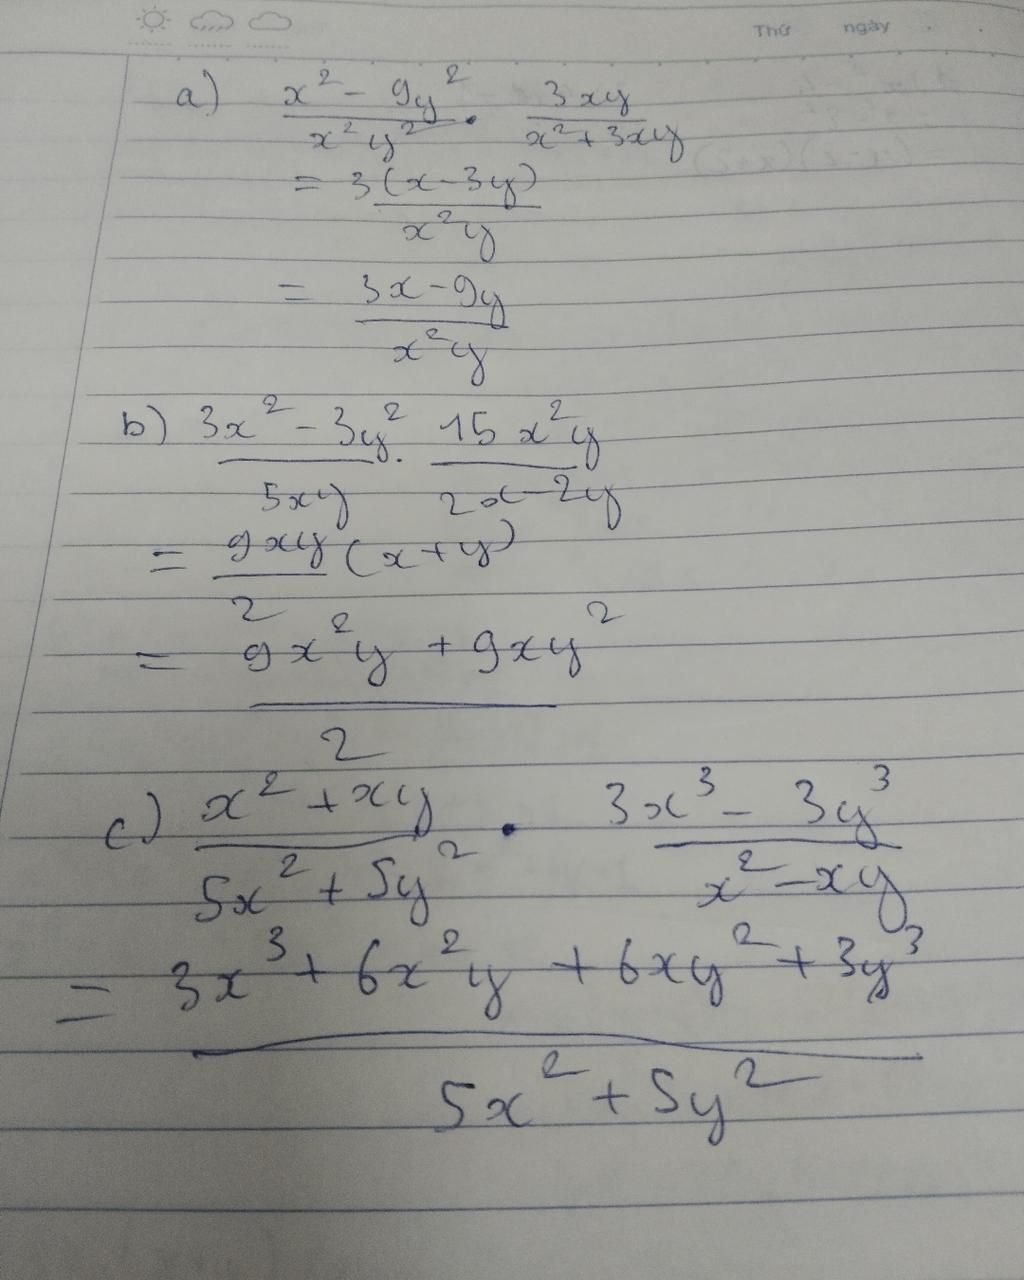 Thứ ngày
a) \frac{x^2 - 9y^2}{x^2y^2} . \frac{3xy}{x^2 + 3xy}
= \frac{3(x - 3y)}{x^2y}
= \frac{3x - 9y}{x^2y}
b) \frac{3x^2 - 3y^2}{5xy} . \frac{15x^2y}{2x - 2y}
= \frac{9xy}{2} (x + y)
= \frac{9x^2y + 9xy^2}{2}
c) \frac{x^2 + xy}{5x^2 + 5y^2} . \frac{3x^3 - 3y^3}{x^2 - xy}
= \frac{3x^3 + 6x^2y + 6xy^2 + 3y^3}{5x^2 + 5y^2}